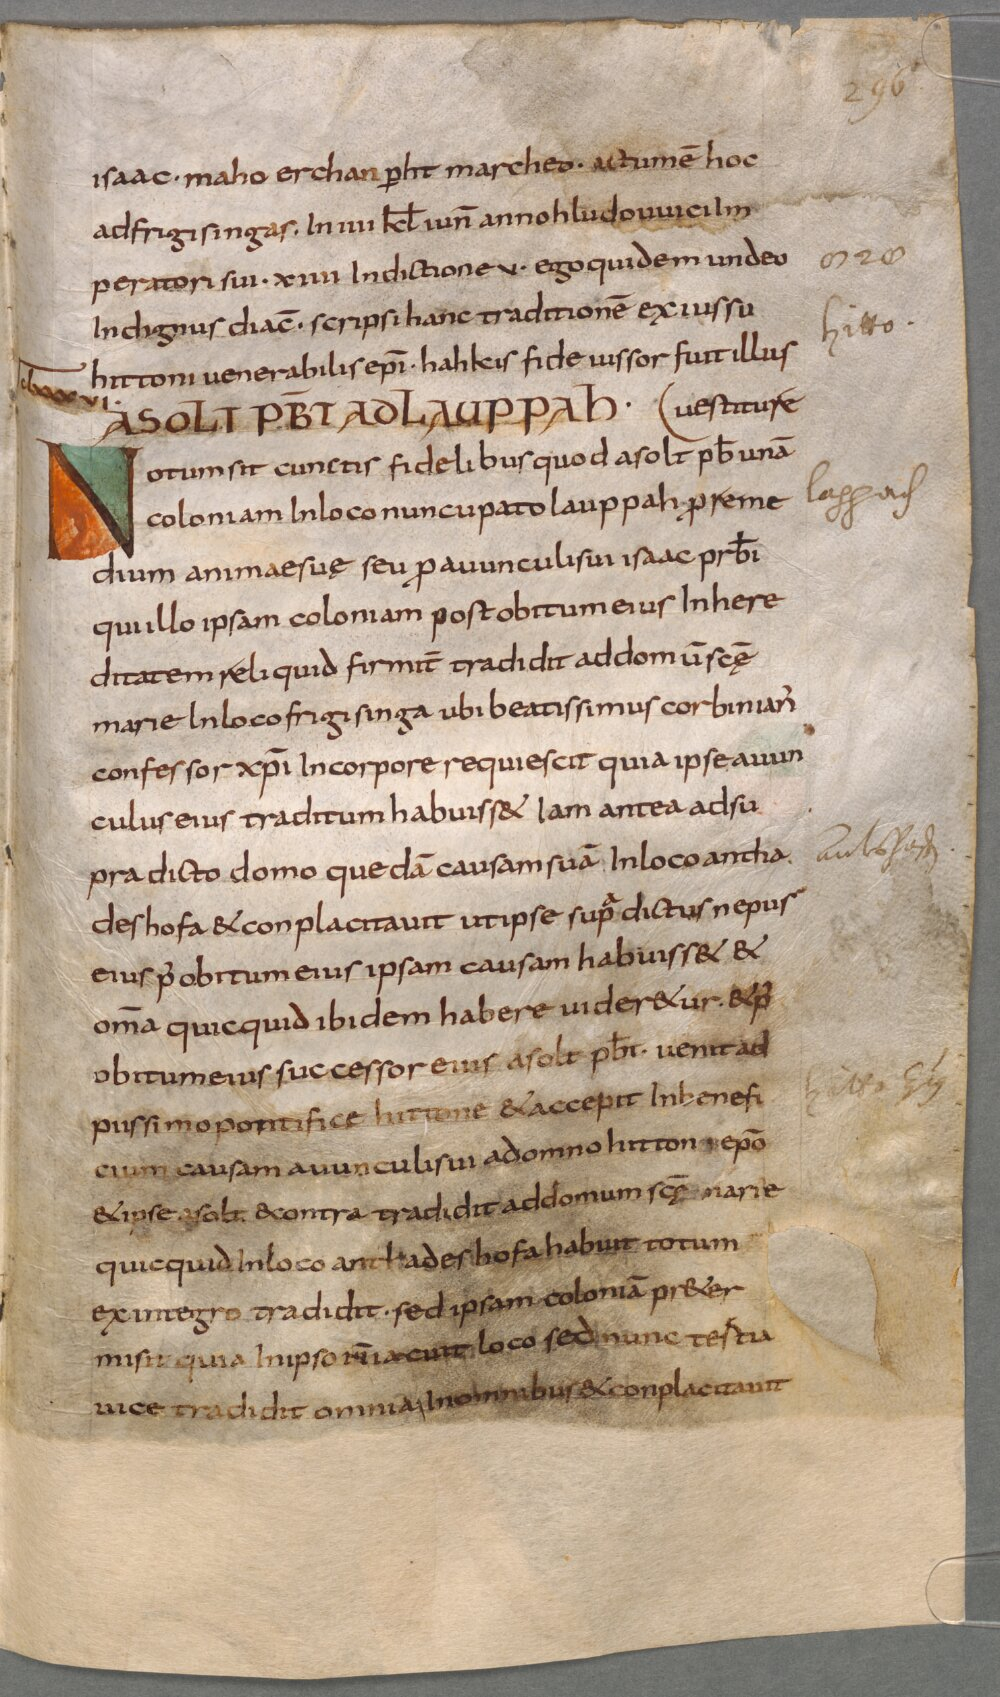 296
isaac· maho erchanp̱ht marcheo· actumē hoc
adfrigisingas. In iiii kl̄ iun̄ anno hludouuici Im
peratori sui· xiiii Indictione v· ego quidem undeo
Indignus diac̄· scripsi hanc traditionē ex iussu
hittoni uenerabilis ep̄i· hahkis fideiussor fuit illius
ASOLT PB̄T AD LAUPPAH· (uestiture
Notum sit cunctis fidelibus quod asolt pb̄ unā
coloniam In loco nuncupato lauppah ꝓ reme
dium animae suę seu ꝓ auunculi sui isaac prb̄i
qui illo ipsam coloniam post obitum eius In here
ditatem reliquid firmit̄ tradidit ad domū sc̄ę
marie In loco frigisinga ubi beatissimus corbinian̄
confessor xp̄i In corpore requiescit quia ipse auun
culus eius traditum habuiss& Iam antea ad su
pradicto domo quedā causam suā In loco antha
deshofa & conplacitauit ut ipse supradictus nepus
eius p̄ obitum eius ipsam causam habuiss& &
om̄a quicquid ibidem habere uider&ur. & p̄
obitum eius successor eius asolt pb̄t· uenit ad
piissimo pontifice hittone & accepit In benefi
cium causam auunculi sui a domno hittone ep̄o
& ipse asolt & contra tradidit ad domum sc̄ę marie
quicquid In loco anthadeshofa habuit totum
ex integro tradidit· sed ipsam coloniā pr&er
misit quia In ipso placuit loco sed nunc testiu
uice tradidit omnia In omnibus & conplacitauit
hitto·
lappach